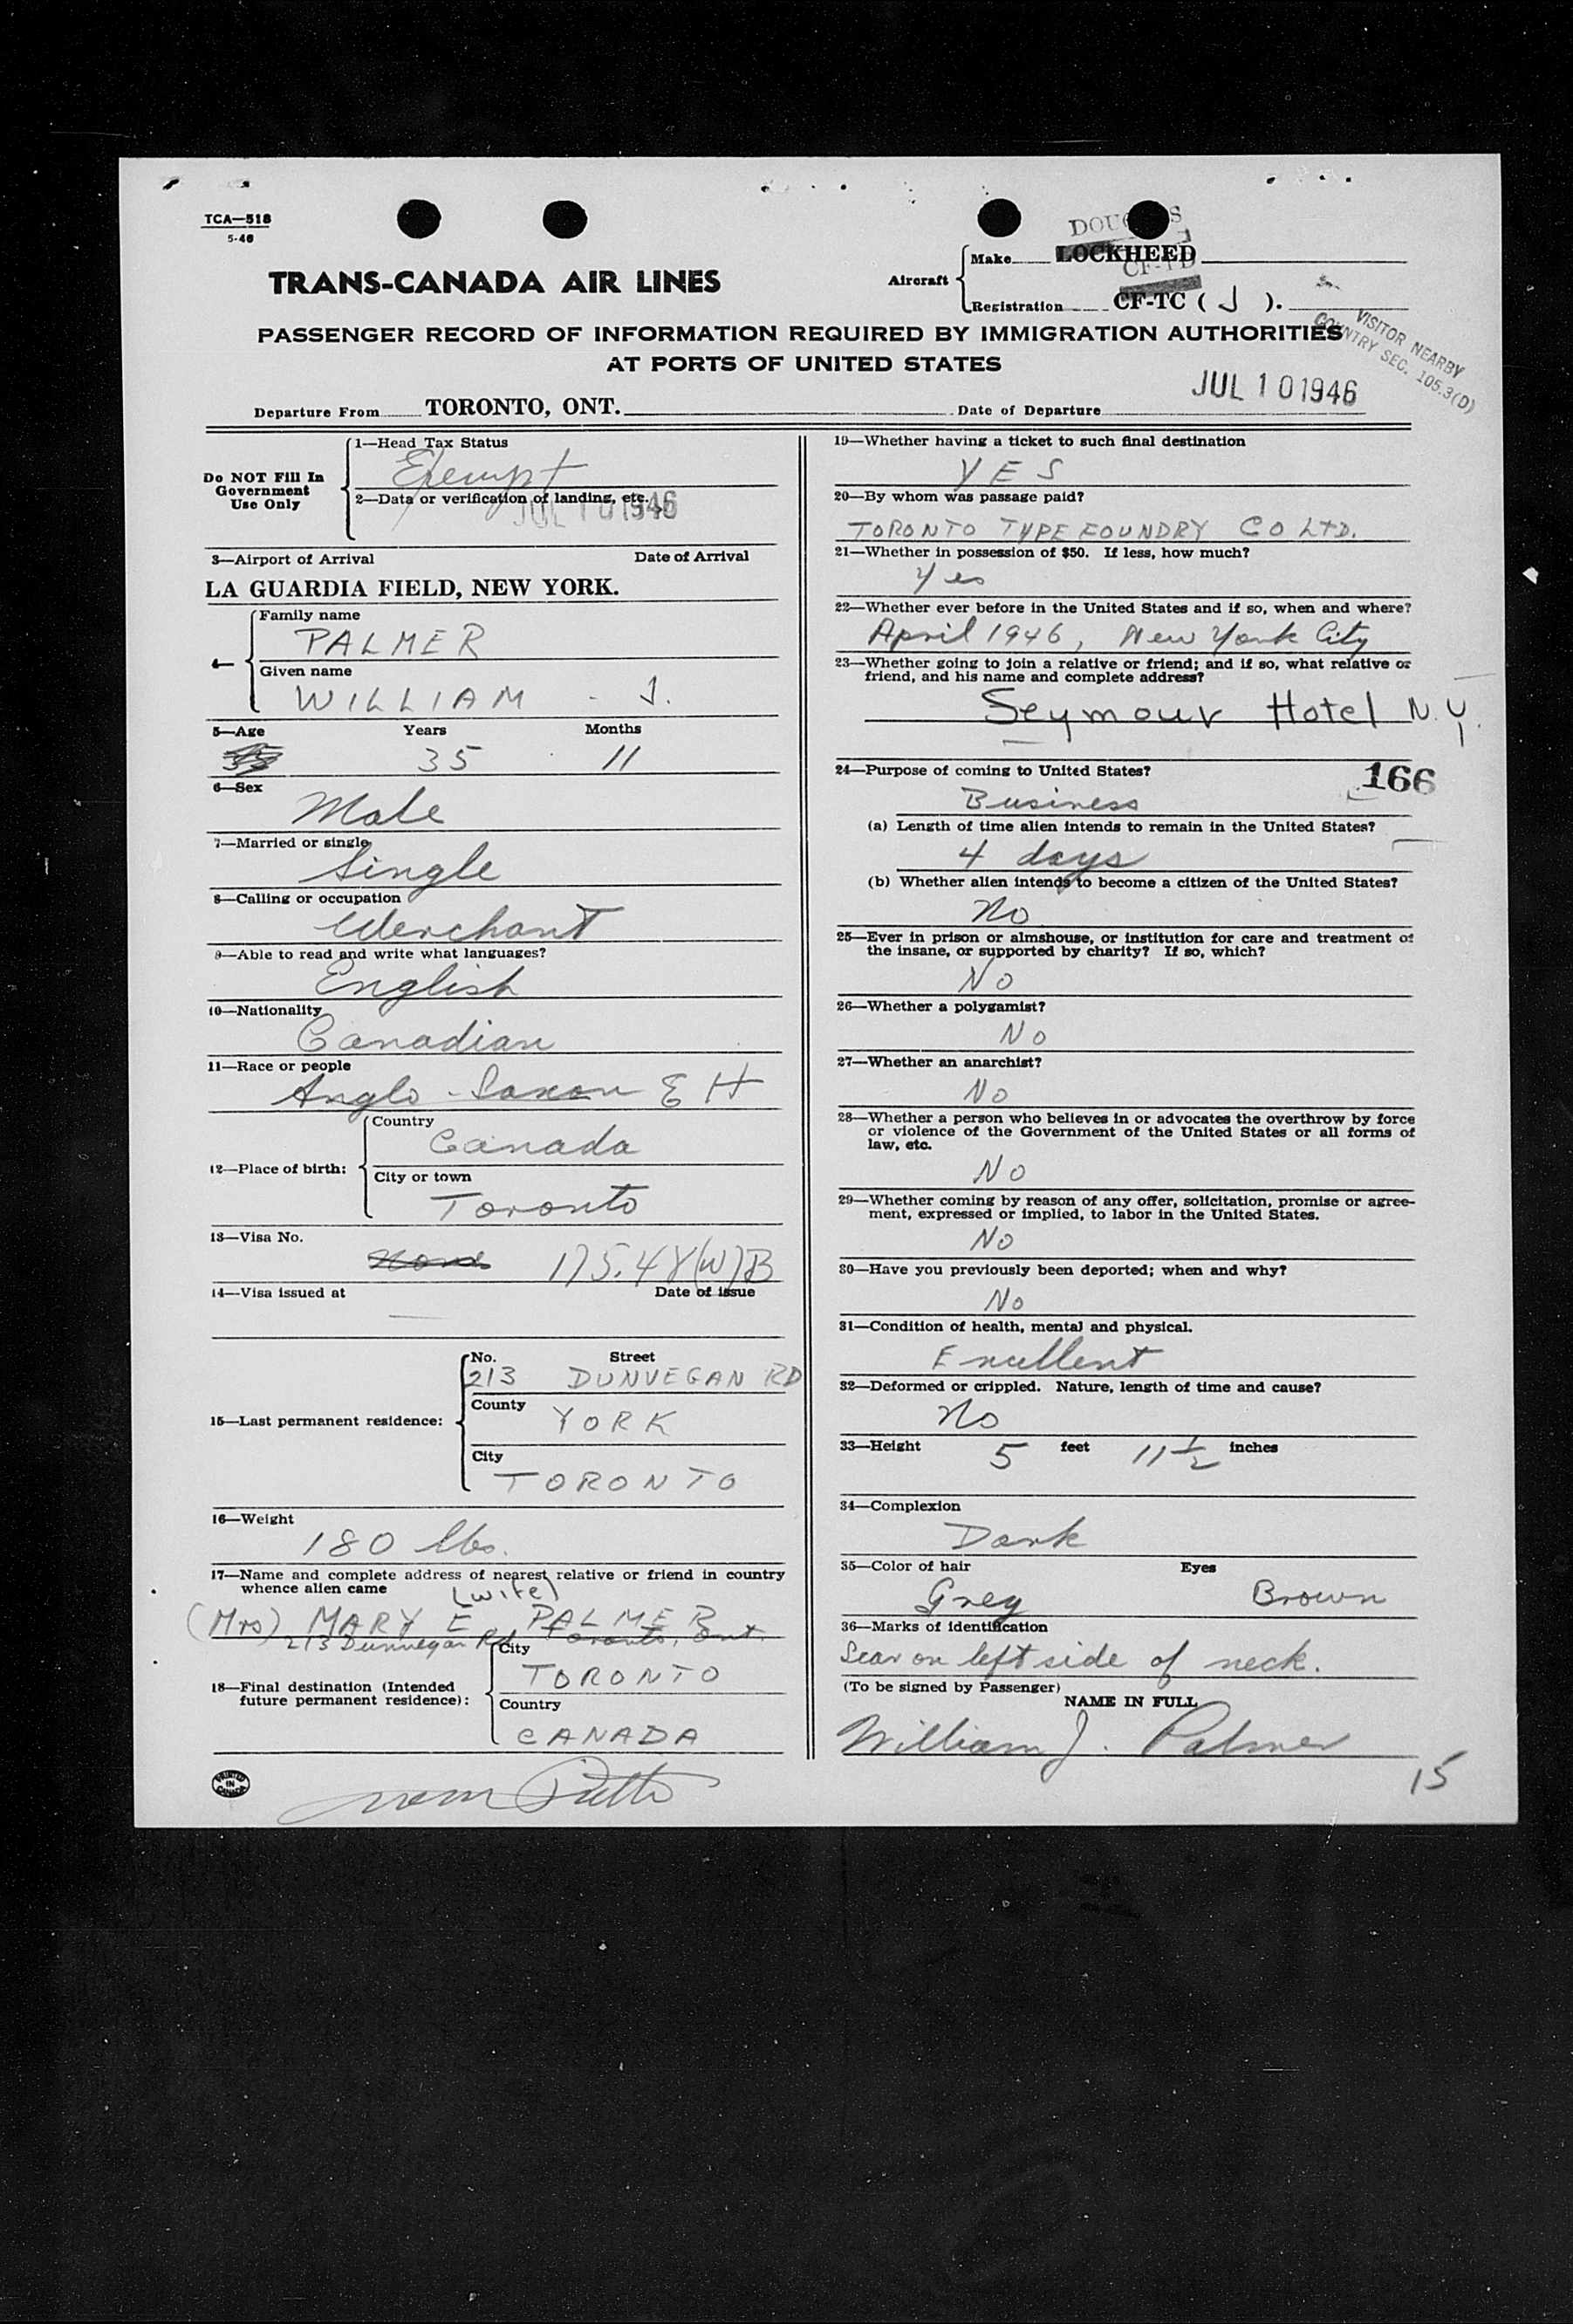 TCA—518
5-46
DOUGLAS
Make LOCKHEED
CF-TD
Aircraft
Registration CF-TC ( J ).
TRANS-CANADA AIR LINES
PASSENGER RECORD OF INFORMATION REQUIRED BY IMMIGRATION AUTHORITIES
AT PORTS OF UNITED STATES
VISITOR NEARBY
COUNTRY SEC. 105.3(D)
JUL 10 1946
Departure From TORONTO, ONT. Date of Departure
Do NOT Fill In
Government
Use Only
1—Head Tax Status
Exempt
2—Data or verification of landing, etc.
JUL 10 1946
3—Airport of Arrival Date of Arrival
LA GUARDIA FIELD, NEW YORK.
4—
Family name
PALMER
Given name
WILLIAM - J.
5—Age Years Months
35 11
6—Sex
Male
7—Married or single
Single
8—Calling or occupation
Merchant
9—Able to read and write what languages?
English
10—Nationality
Canadian
11—Race or people
Anglo-Saxon E H
12—Place of birth:
Country
Canada
City or town
Toronto
13—Visa No.
None 175.48(W)B
14—Visa issued at Date of issue
15—Last permanent residence:
No. Street
213 DUNVEGAN RD
County
YORK
City
TORONTO
16—Weight
180 lbs.
17—Name and complete address of nearest relative or friend in country
whence alien came
(wife)
(Mrs) MARY E PALMER
213 Dunvegan Rd Toronto, Ont.
18—Final destination (Intended
future permanent residence):
City
TORONTO
Country
CANADA
PRINTED
IN
CANADA
19—Whether having a ticket to such final destination
YES
20—By whom was passage paid?
TORONTO TYPE FOUNDRY CO LTD.
21—Whether in possession of $50. If less, how much?
Yes
22—Whether ever before in the United States and if so, when and where?
April 1946, New York City
23—Whether going to join a relative or friend; and if so, what relative or
friend, and his name and complete address?
Seymour Hotel N.Y.
24—Purpose of coming to United States?
166
Business
(a) Length of time alien intends to remain in the United States?
4 days
(b) Whether alien intends to become a citizen of the United States?
No
25—Ever in prison or almshouse, or institution for care and treatment of
the insane, or supported by charity? If so, which?
No
26—Whether a polygamist?
No
27—Whether an anarchist?
No
28—Whether a person who believes in or advocates the overthrow by force
or violence of the Government of the United States or all forms of
law, etc.
No
29—Whether coming by reason of any offer, solicitation, promise or agree-
ment, expressed or implied, to labor in the United States.
No
30—Have you previously been deported; when and why?
No
31—Condition of health, mental and physical.
Excellent
32—Deformed or crippled. Nature, length of time and cause?
No
33—Height 5 feet 11 1/2 inches
34—Complexion
Dark
35—Color of hair Eyes
Grey Brown
36—Marks of identification
Scar on left side of neck.
(To be signed by Passenger)
NAME IN FULL
William J. Palmer
15